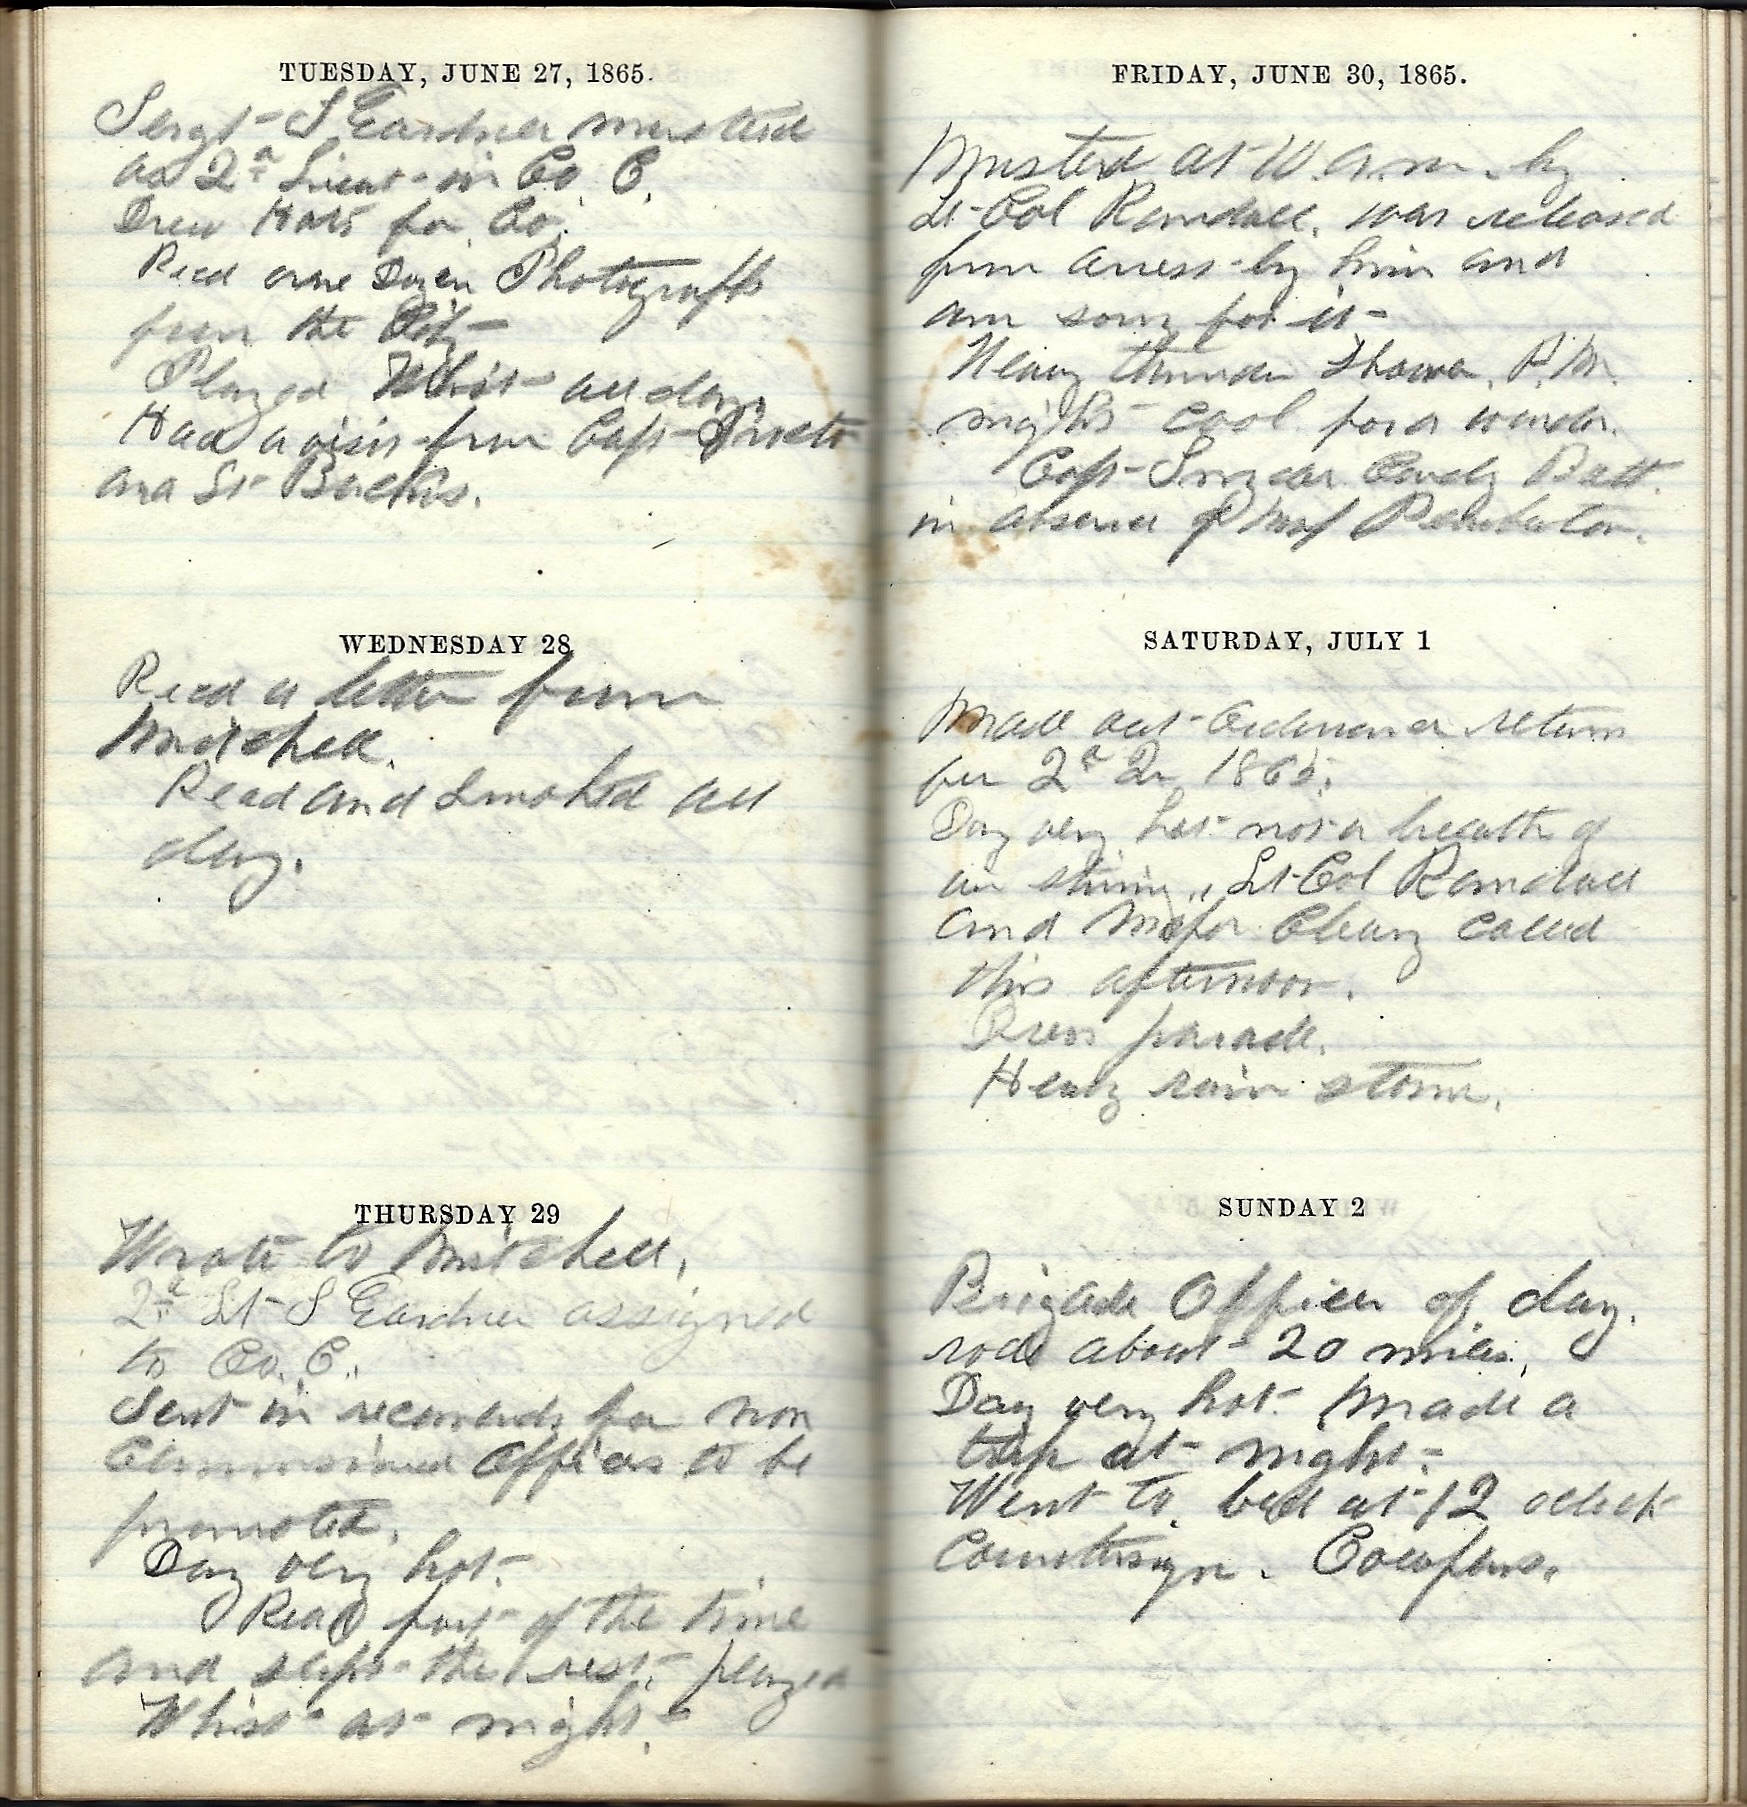 TUESDAY, JUNE 27, 1865.
Sergt S Gardner mustered
as 2d Lieut in Co C.
Drew Hats for Co.
Recd one Dozen Photografhs
from the City
Played Whist all day.
Had a visit from Capt
and Lt Backus.
WEDNESDAY 28
Recd a letter from
Mitchell.
Read and Smoked all
day.
THURSDAY 29
Wrote to Mitchell.
2d Lt S Gardner assigned
to Co. C.
Sent in recomends for non
Commissioned Officers to be
promoted.
Day very hot.
Read part of the time
and slept the rest. played
Whist at night.
FRIDAY, JUNE 30, 1865.
Musterd at 10 a.m. by
Lt Col Randall. was released
from arrest by him and
am sorry for it
Heavy thunder Shower. P.M.
nights cool for a wonder.
Capt Snyder Comdg Batt.
in absence of Maj Pemberton.
SATURDAY, JULY 1
Made out Ordnance return
for 2d Qr 1865.
Day very hot not a breath of
air stiring. Lt Col Randall
and Major Cleary called
this afternoon.
Dress parade.
Heavy rain storm.
SUNDAY 2
Brigade Officer of day.
rode about 20 miles.
Day very hot. Made a
trip at night.
Went to bed at 12 oclock
Countersign. Cowpens.